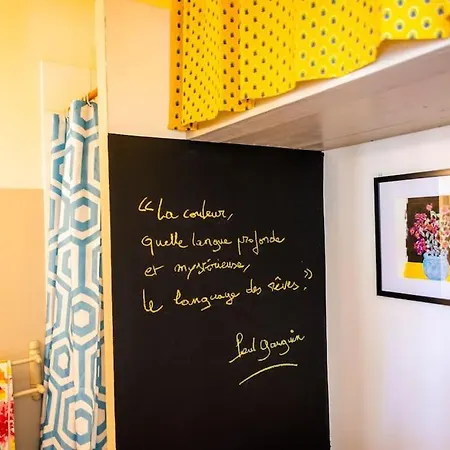 “La couleur,
quelle langue profonde
et mystérieuse,
le language des rêves.”
Paul Gauguin